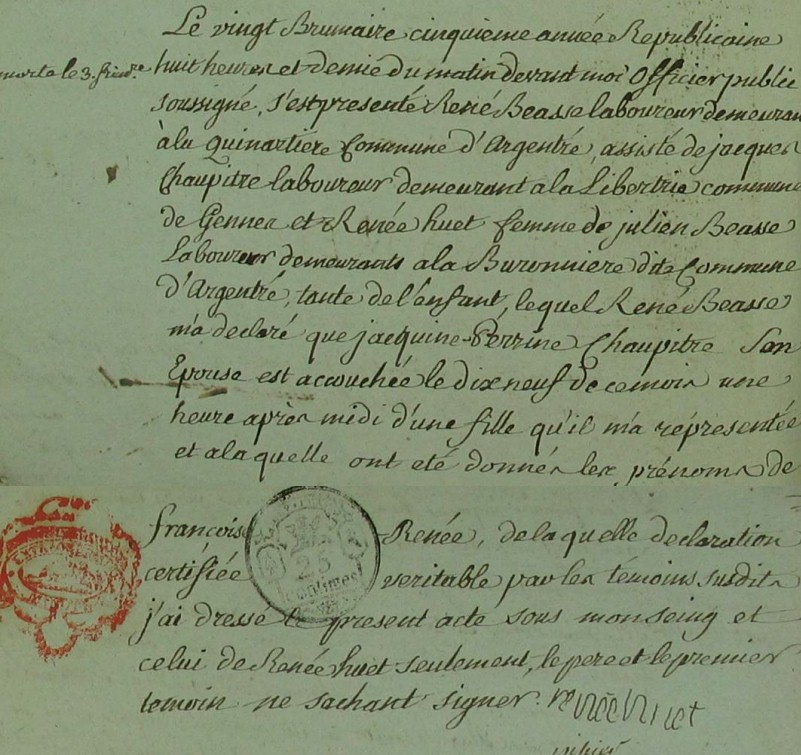 Le vingt Brumaire cinquieme année Republicaine
morte le 3. frim.re
huit heures et demie du matin devant moi Officier public
soussigné, s'est presenté René Beasse laboureur demeurant
à la Quinartière Commune d'Argentré, assisté de jacques
Chaupitre laboureur demeurant a la Libertrie commune
de Gennes et Renée huet femme de julien Beasse
Laboureur demeurants a la Buronniere dite Commune
d'Argentré, tante de l'enfant, lequel René Beasse
m'a declaré que jacquine-Perrine Chaupitre Son
Epouse est accouchée le dix neuf de ce mois une
heure après midi d'une fille qu'il m'a representée
et a laquelle ont eté donnés les prénoms de
françoise Renée, de laquelle declaration
certifiée veritable par les témoins susdits
j'ai dressé le present acte sous mon seing et
celui de Renée huet seulement, le pere et le premier
temoin ne sachant signer. renée huet
25
centimes